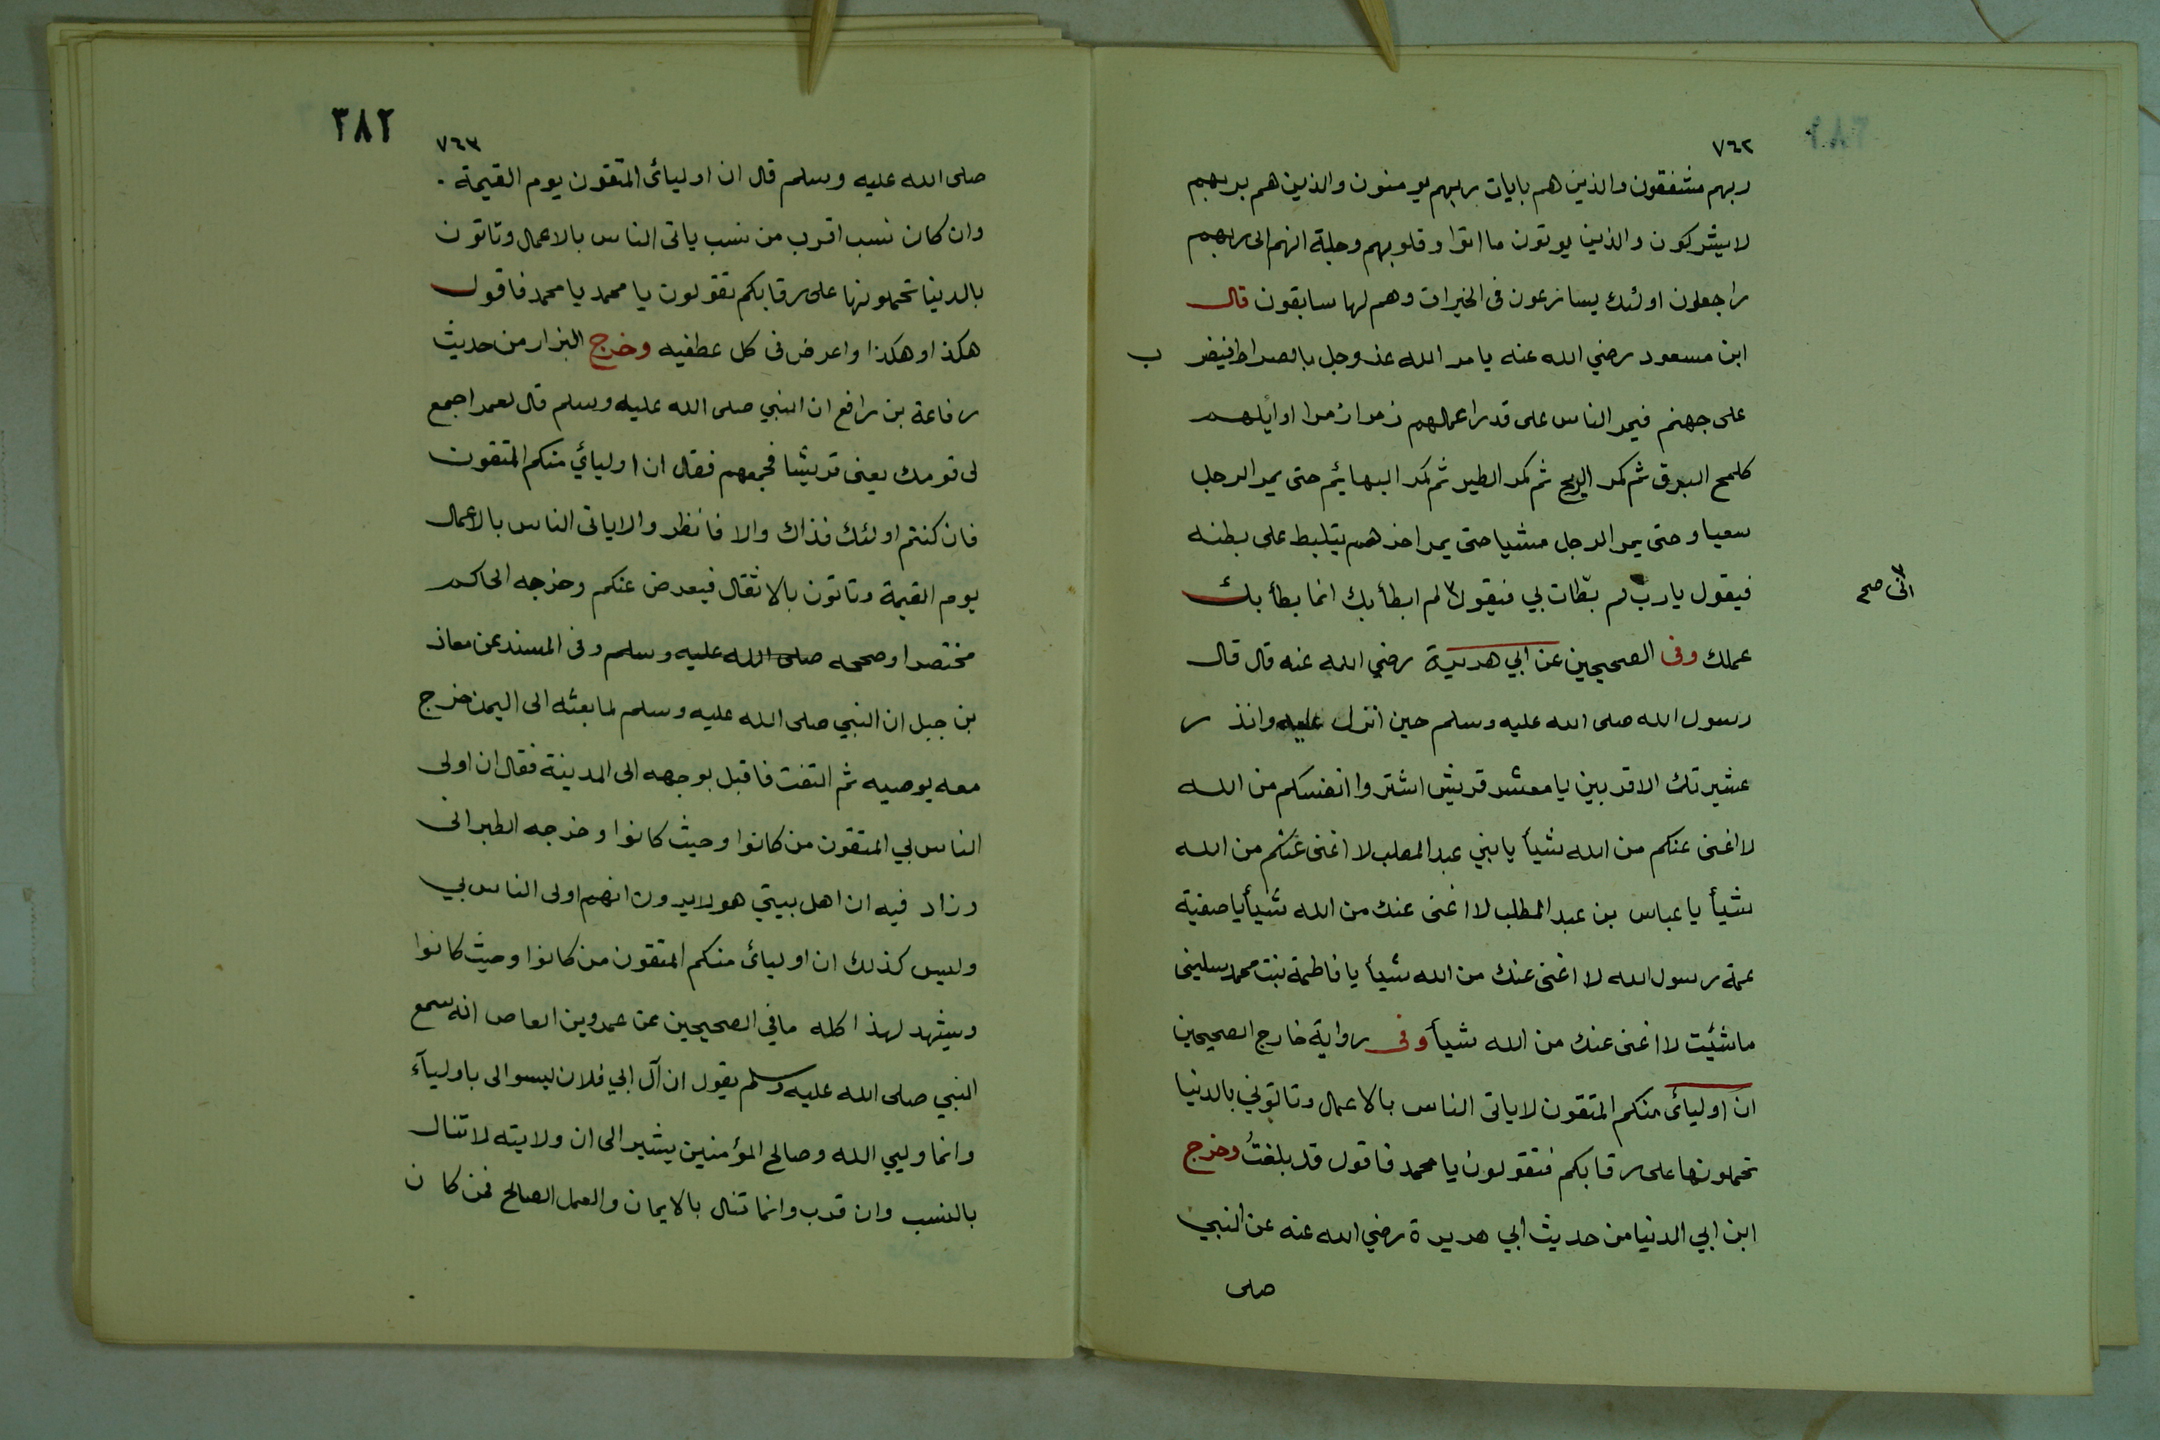 ٧٦٢
ربهم مشفقون والذين هم بايات ربهم يومنون والذين هم بربهم
لا يشركون والذين يوتون ما اتوا وقلوبهم وجلة انهم الى ربهم
راجعون اولئك يسارعون فى الخيرات وهم لها سابقون قال
ابن مسعود رضي الله عنه يامر الله عز وجل بالصراط فيضر ب
على جهنم فيمر الناس على قدر اعمالهم زمرا زمرا اوائلهم
كلمح البرق ثم كمر الريح ثم كمر الطير ثم كمر البهائم حتى يمر الرجل
سعيا وحتى يمر الرجل مشيا حتى يمر اخرهم يتلبط على بطنه
فيقول يا رب لم بطات بي فيقول ٣ لم ابطأ بك انما بطأ بك
٣ انى صح
عملك وفى الصحيحين عن ابي هريرة رضي الله عنه قال قال
رسول الله صلى الله عليه وسلم حين انزل عليه وانذ ر
عشيرتك الاقربين يا معشر قريش اشتروا انفسكم من الله
لا اغنى عنكم من الله شيأ يا بني عبد المطلب لا اغنى عنكم من الله
شيأ يا عباس بن عبد المطلب لا اغنى عنك من الله شيأ يا صفية
عمة رسول الله لا اغنى عنك من الله شيأ يا فاطمة بنت محمد سلينى
ما شئت لا اغنى عنك من الله شيأ وفى رواية خارج الصحيحين
ان اوليائى منكم المتقون لا ياتى الناس بالاعمال وتاتوني بالدنيا
تحملونها على رقابكم فتقولون يا محمد فاقول قد بلغت وخرج
ابن ابي الدنيا من حديث ابي هريرة رضي الله عنه عن النبي
صلى
٣٨٢
٧٦٣
صلى الله عليه وسلم قال ان اوليائى المتقون يوم القيمة .
وان كان نسب اقرب من نسب ياتى الناس بالاعمال وتاتون
بالدنيا تحملونها على رقابكم تقولون يا محمد يا محمد فاقول
هكذا وهكذا واعرض فى كل عطفيه وخرج البزار من حديث
رفاعة بن رافع ان النبي صلى الله عليه وسلم قال لعمر اجمع
لى قومك يعنى قريشا فجمعهم فقال ان اوليائي منكم المتقون
فان كنتم اولئك فذاك والا فانظر والا ياتى الناس بالاعمال
يوم القيمة وتاتون بالاثقال فيعرض عنكم وخرجه الحاكم
مختصرا وصححه صلى الله عليه وسلم وفى المسند عن معاذ
بن جبل ان النبي صلى الله عليه وسلم لما بعثه الى اليمن خرج
معه يوصيه ثم التفت فاقبل بوجهه الى المدينة فقال ان اولى
الناس بي المتقون من كانوا وحيث كانوا وخرجه الطبرانى
وزاد فيه ان اهل بيتي هولا يرون انهم اولى الناس بي
وليس كذلك ان اوليائ منكم المتقون من كانوا وحيث كانوا
ويشهد لهذا كله ما في الصحيحين عن عمرو بن العاص انه سمع
النبي صلى الله عليه وسلم يقول ان آل ابي فلان ليسوا لى باوليآء
وانما وليي الله وصالح المؤمنين يشير الى ان ولايته لا تنال
بالنسب وان قرب وانما تنال بالايمان والعمل الصالح فمن كا ن